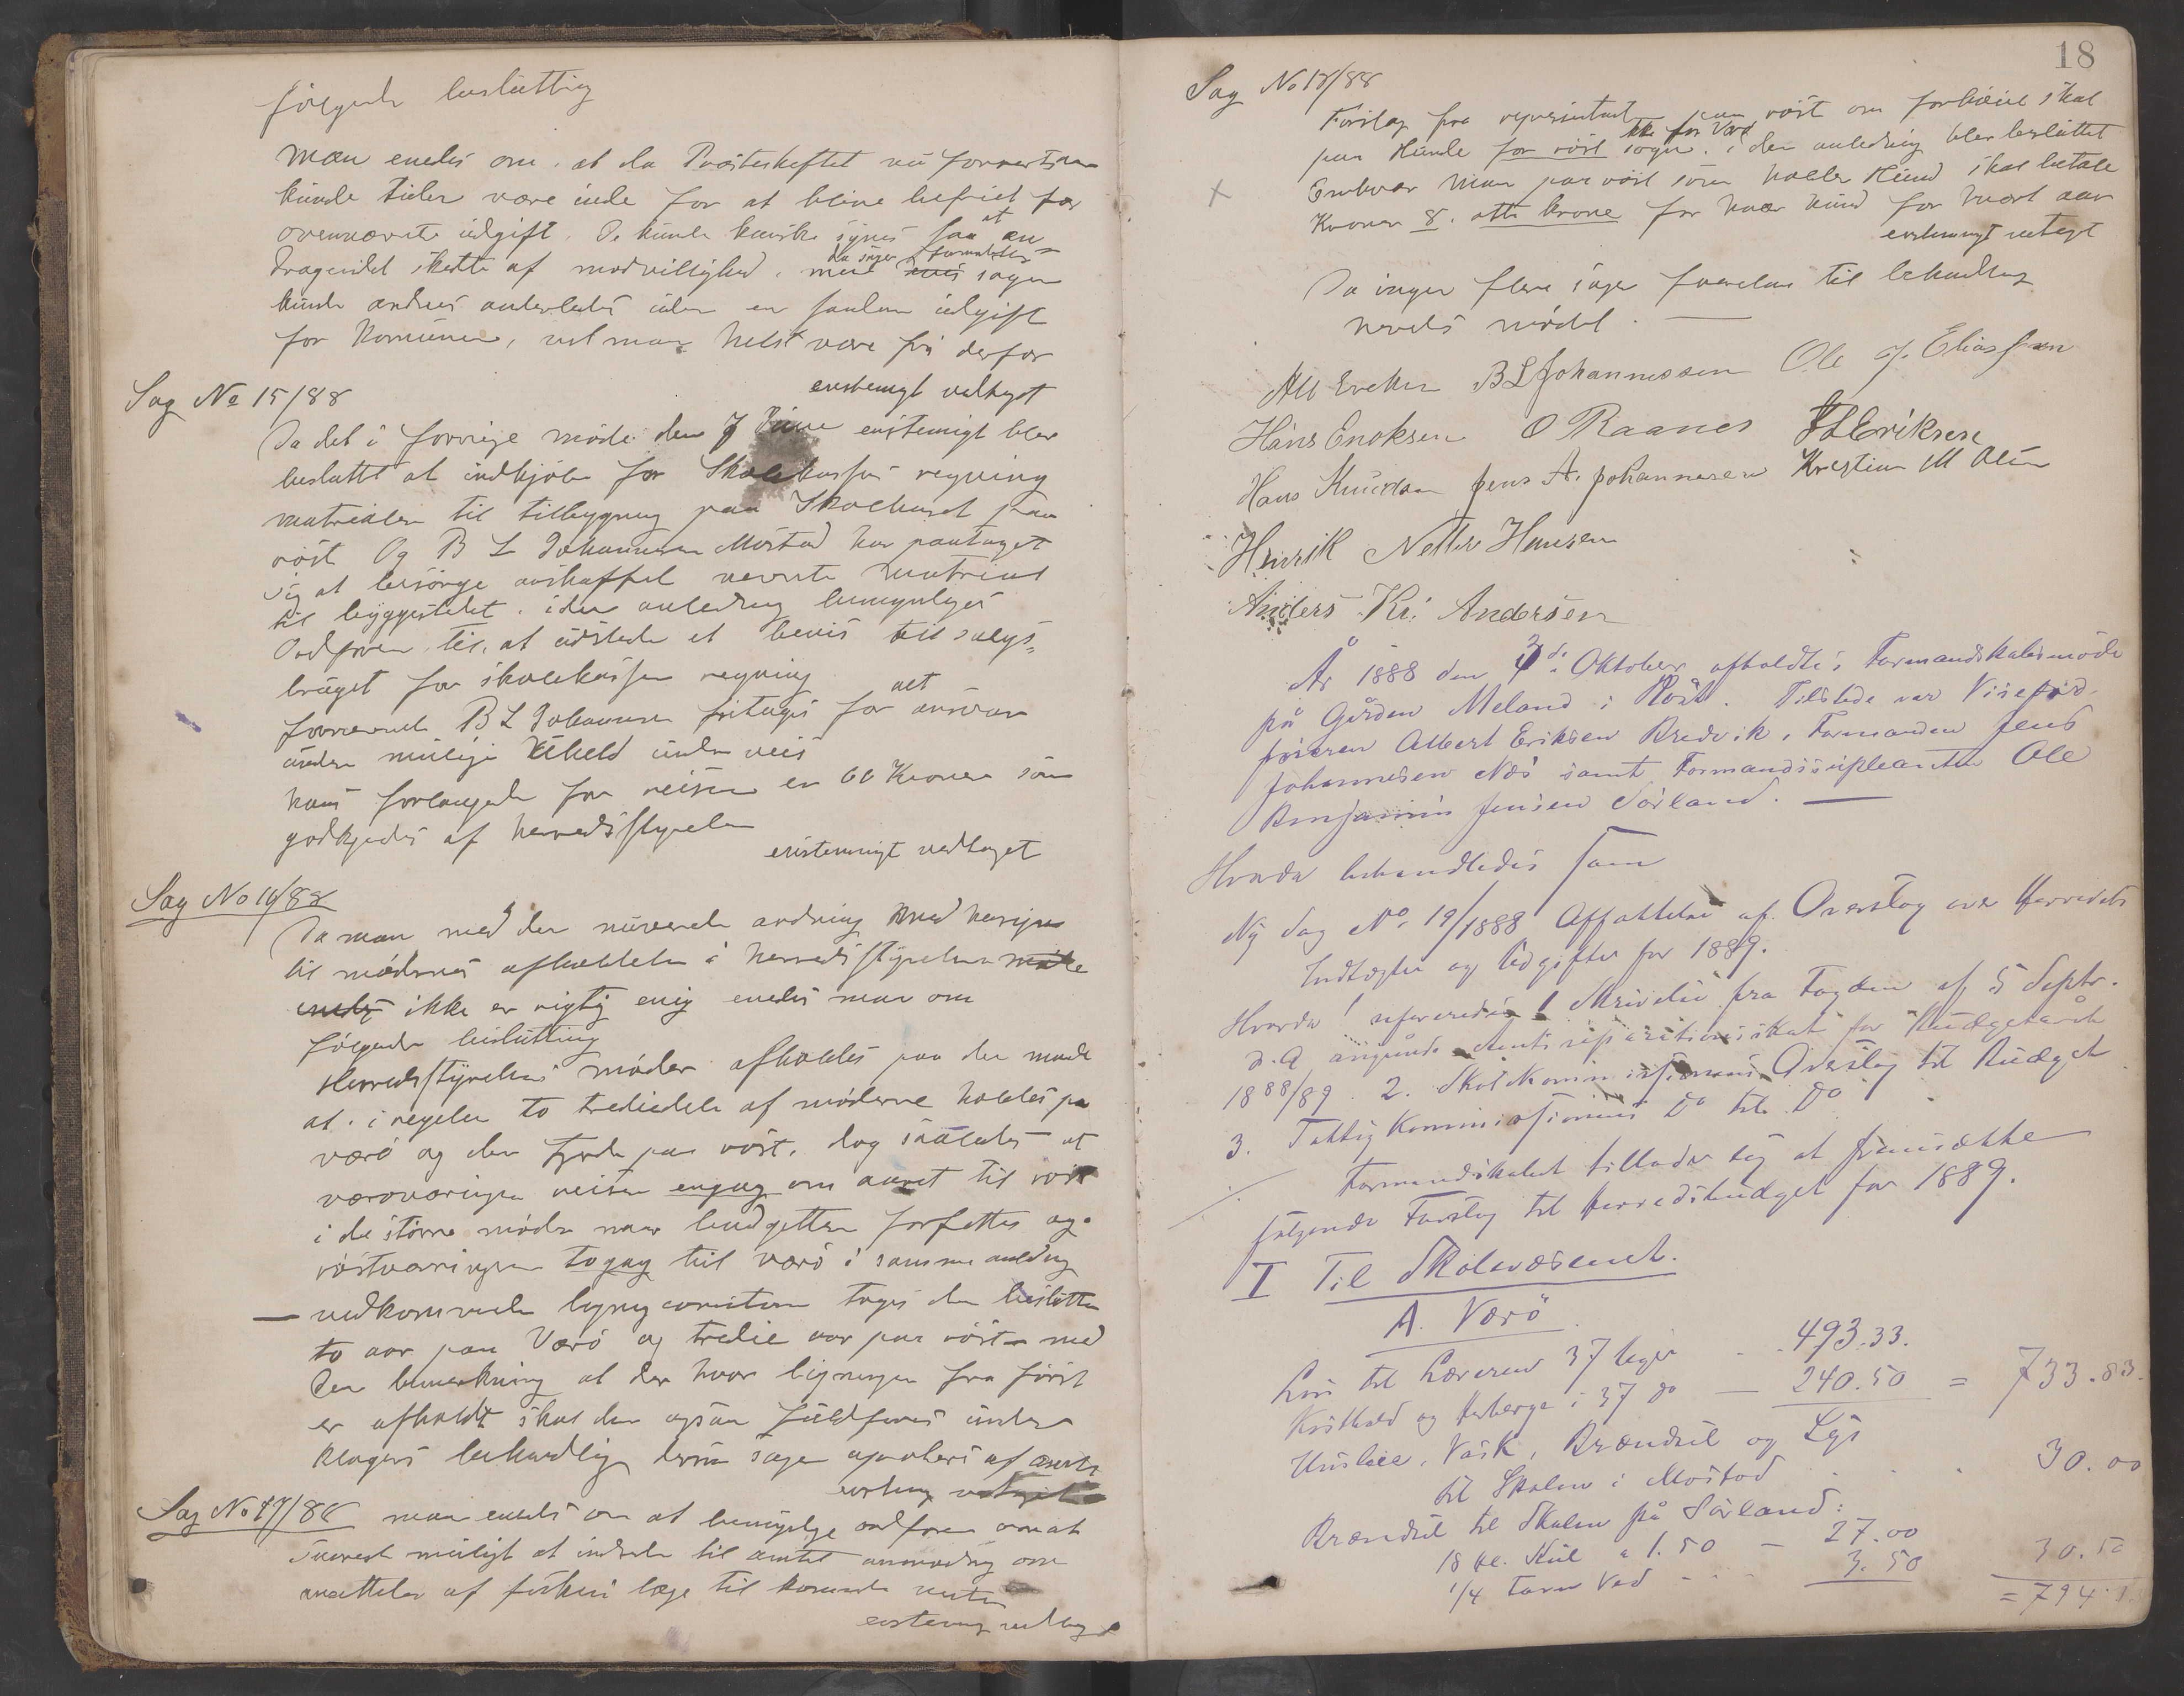 følgende beslutting
man enedes om at da Præsteskeftet nu
kunde tiden være inde for at blive befriet for
ovennævnte udgift. De kunde kanske synes saa at an
dragendet skedte af modvillighed, men sagen
kunde ordnes anderledes uden en saadan udgift
for Komunen, vil man helst være fri derfor
enstemigt vedtagt
Sag No 15/88
Da det i forrige møde den 7 Juni enstemigt blev
besluttet at indkjøbe for Skolekassens regning
matrialer til tilbygning paa Skolehuset paa
röst Og B L Johannesen Mostad har paataget
sig at besörge anskaffet nævnte matrial
til byggestedet. i den anledning bemyndiges
Ordføren til at udstede et bevis til salgs=
bruget for skolekassen regning
fornævnte B L Johannesen fritages for alt ansvar
under mulige Uheld under veis
hans forlangende for reisen er 60 Kroner som
godkjendes af herredsstyrelsen
enstemmigt vedtaget
Sag No 16/88
Da man med den nuværende ordning med hensyn
til mødernes afholdelse i herredsstyrelsen
ikke er rigtig enig enedes man om
følgende beslutting
Herredsstyrelsens møder afholdes paa den maade
at i regelen to trediedele af møderne holdes paa
værö og den paa röst, dog saaledes at
værøværingen reiser engag om aaret til röst
i de større møder naar budgetten forfattes og
röstværingen togag til værö i samme anledng
— vedkommende ligning tages den besluttn
to aar paa Værö og tredie aar paa röst med
Den bemærkning at der hvor ligningen fra först
er afholdt skal den ogsaa fuldføres under
klagers behandling dersom sagen af amtet
Sag No 17/88 man enedes om at bemyndige ordføren om at
snarest muligt at indsende til amtet anmodning om
ansættelse af fiskeri læge til komende vinter
enstemig vedtag
18
Sag No 18/88
Forslag fra representanten paa röst om forhöiet skat
paa Hunde for röst sogn. ikke for Værö i den anledning blev besluttet
Enhver Man paa röst som holder Hund skal betale
Kroner 8. otte krone for hver hund for hvert aar
enstemmigt vedtagt
Da ingen flere sager forelaa til behandling
hevedes mödet. —
Alb Eriksen B L Johannessen Ole J. Eliassen
Hans Enoksen O Raanes J L Eriksen
Hans Knudsen Jens A. Johannesen Kristian M Olsen
Henrik Netter Hansen
Anders Kr. Andersen
År 1888 den 3de Oktober afholdtes Formandskabsmöde
på Gården Meland i Röst. Tilstede var Viseord-
föreren Albert Eriksen Bredvik, Formanden Jens
Johannesen Næs samt Formandssupleanten Ole
Benjamin Jensen Sörland. —
Hvorda behandledes som
Ny Sag No. 19/1888 Affattelse af Overslag over Herredets
Indtægter og Udgifter for 1889.
Hvorda refereredes 1 Skrivelse fra Fogden af 5 Septr.
d.A angående Amtsrepartitionsskat for Budgetåret
1888/89 2. Skolekommissionens Overslag til Budget
3. Fattigkommissionens Do til Do
Formandskabet tillader sig at fremsætte
fölgende Forslag til Herredsbudget for 1889.
I Til Skolevæsenet.
A. Værö
Lön til Læreren 37 Uger - - 493.33.
Kosthold og Herberge i 37 do — 240.50 = 733.83.
Husleie, Vask, Brændsel og Lys
til Skolen i Mostad . . . 30.00
Brændsel til Skolen på Sörland:
18 hl. Kul a 1.50 — 27.00
1/4 Favn Ved - - - 3.50 30.50
= 794.